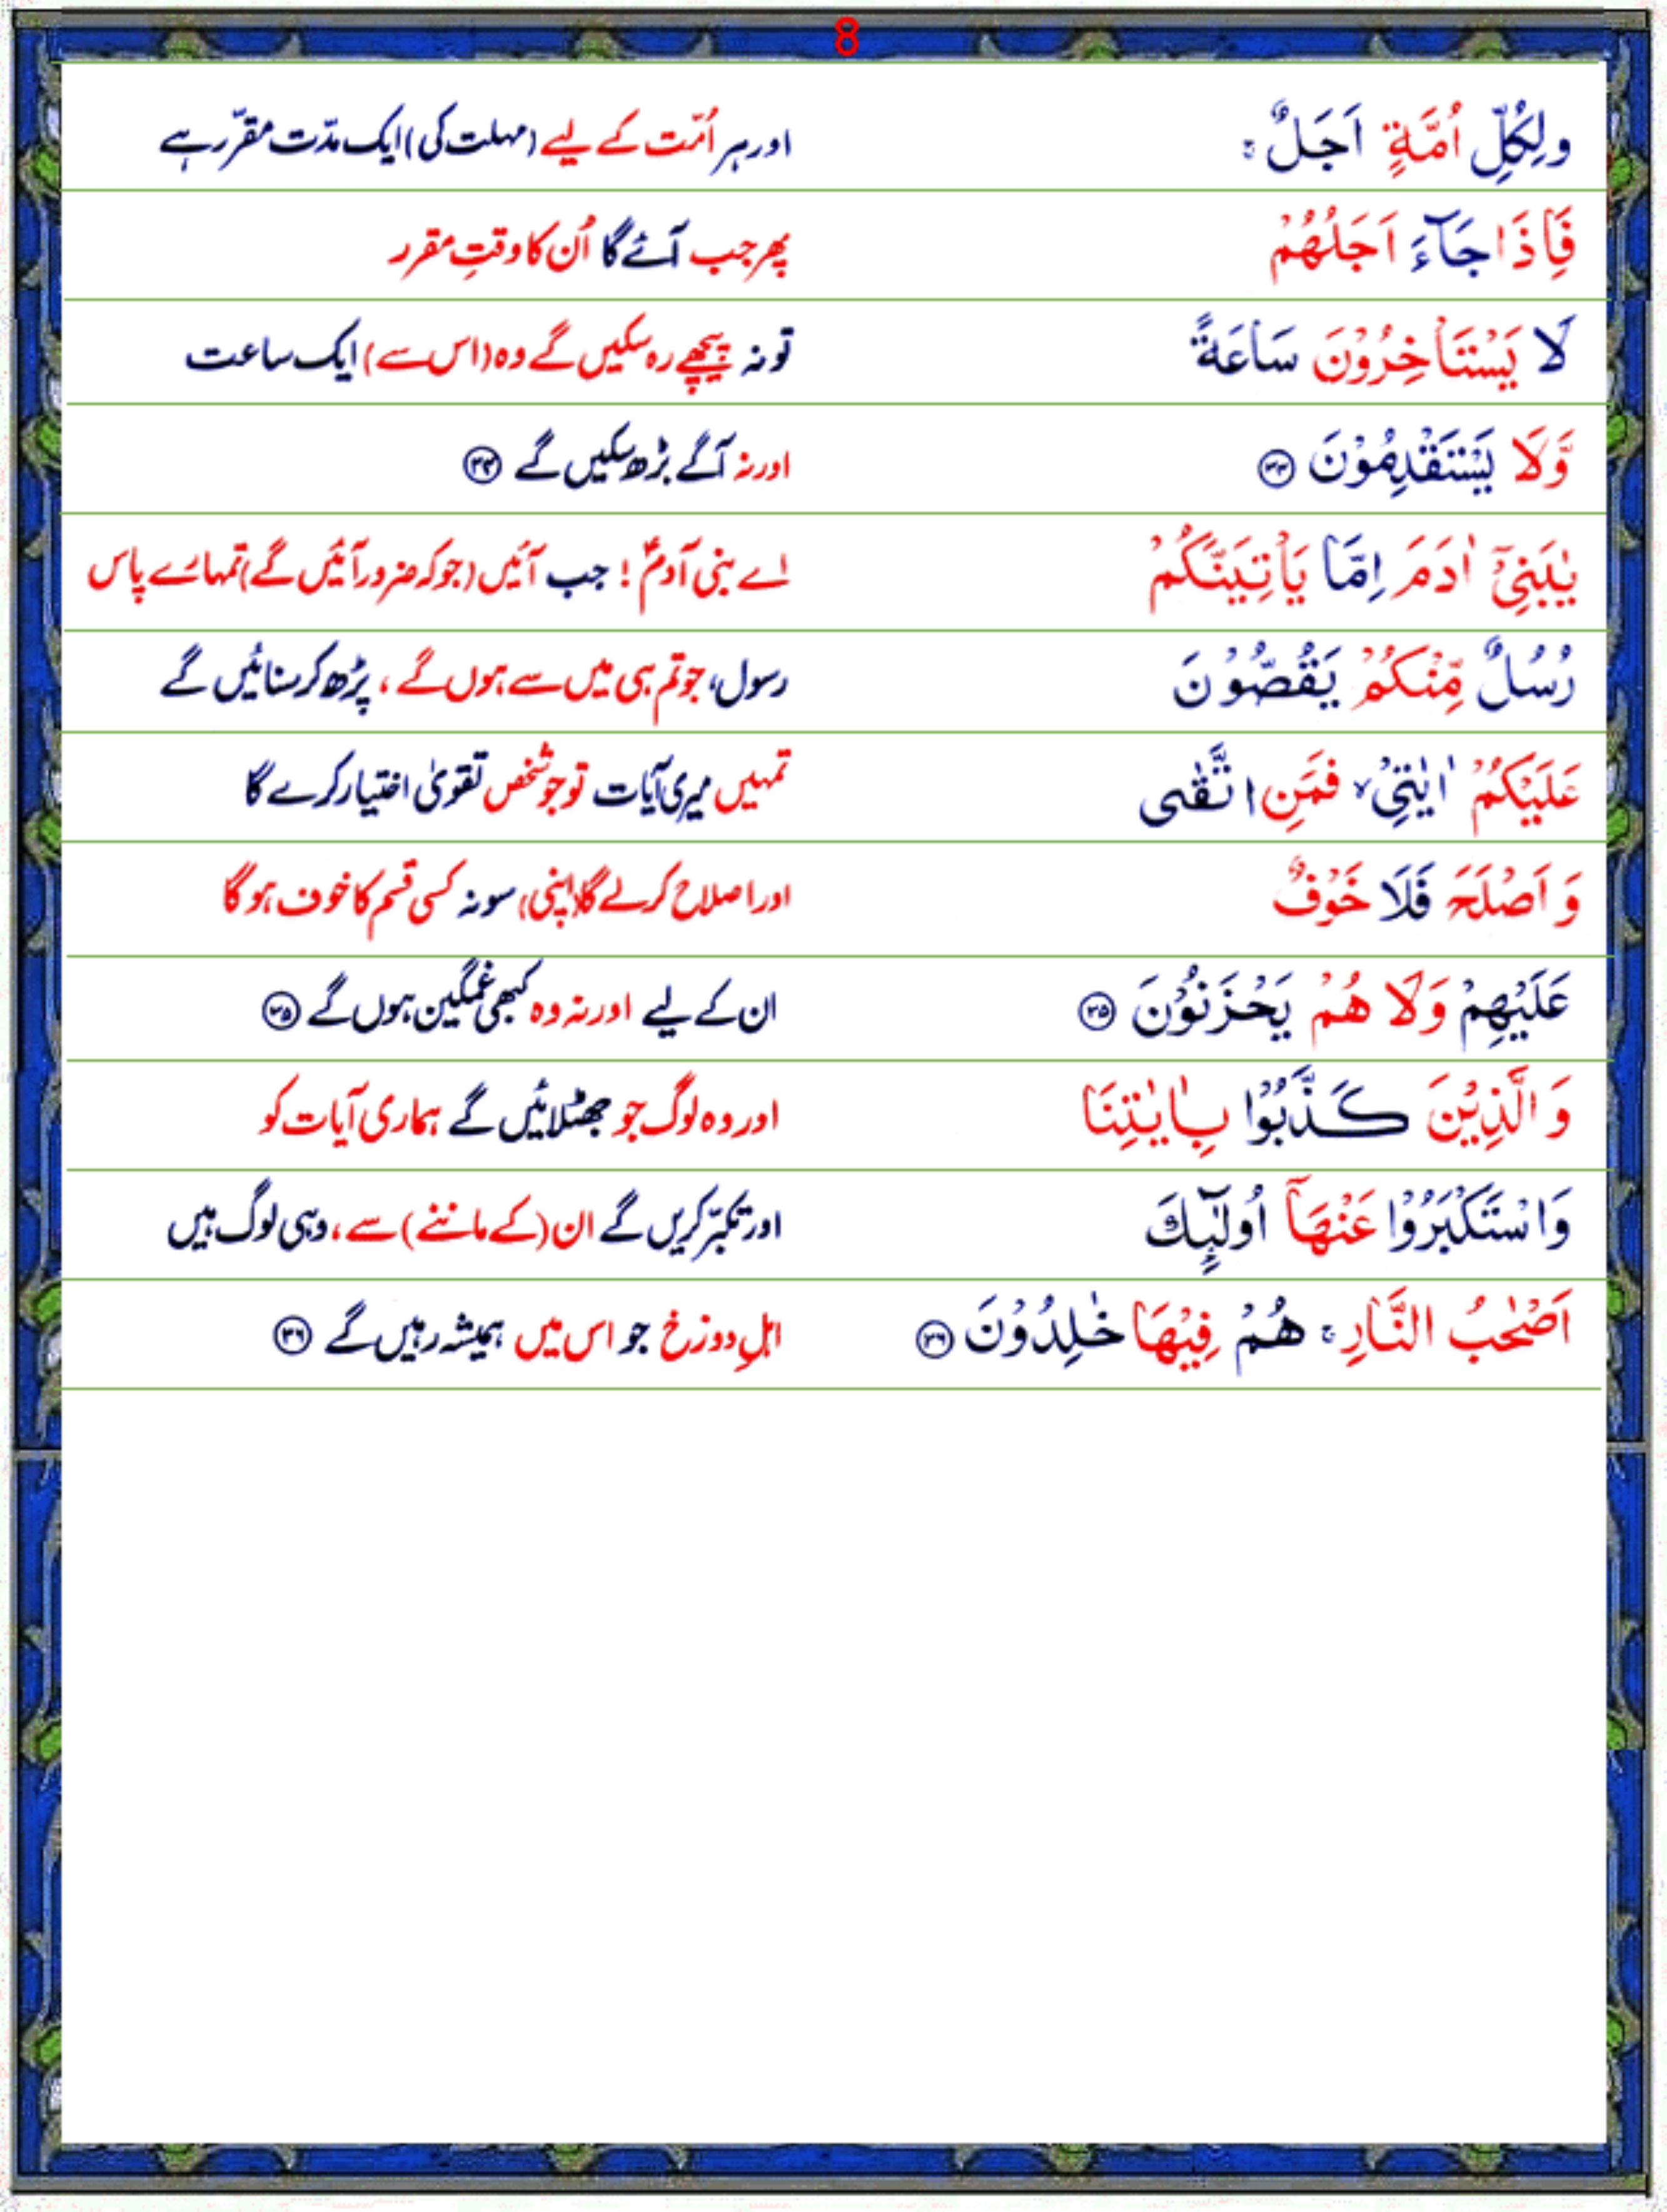 8
ولِكُلِّ اُمَّةٍ اَجَلٌ ۚ اور ہر اُمّت کے لیے (مہلت کی) ایک مدّت مقرّر ہے
فَاِذَا جَآءَ اَجَلُهُمْ پھر جب آئے گا اُن کا وقتِ مقرر
لَا يَسْتَاْخِرُوْنَ سَاعَةً تو نہ پیچھے رہ سکیں گے وہ (اس سے) ایک ساعت
وَّلَا يَسْتَقْدِمُوْنَ ۳۴ اور نہ آگے بڑھ سکیں گے ۳۴
يٰبَنِيْٓ اٰدَمَ اِمَّا يَاْتِيَنَّكُمْ اے بنی آدمؑ ! جب آئیں (جو کہ ضرور آئیں گے) تمہارے پاس
رُسُلٌ مِّنْكُمْ يَقُصُّوْنَ رسول، جو تم ہی میں سے ہوں گے ، پڑھ کر سنائیں گے
عَلَيْكُمْ اٰيٰتِيْ ۙ فَمَنِ اتَّقٰى تمہیں میری آیات تو جو شخص تقویٰ اختیار کرے گا
وَ اَصْلَحَ فَلَا خَوْفٌ اور اصلاح کر لے گا (اپنی) سو نہ کسی قسم کا خوف ہو گا
عَلَيْهِمْ وَلَا هُمْ يَحْزَنُوْنَ ۳۵ ان کے لیے اور نہ وہ کبھی غمگین ہوں گے ۳۵
وَ الَّذِيْنَ كَذَّبُوْا بِاٰيٰتِنَا اور وہ لوگ جو جھٹلائیں گے ہماری آیات کو
وَاسْتَكْبَرُوْا عَنْهَآ اُولٰٓئِكَ اور تکبّر کریں گے ان (کے ماننے) سے ، وہی لوگ ہیں
اَصْحٰبُ النَّارِ ۚ هُمْ فِيْهَا خٰلِدُوْنَ ۳۶ اہلِ دوزخ جو اس میں ہمیشہ رہیں گے ۳۶